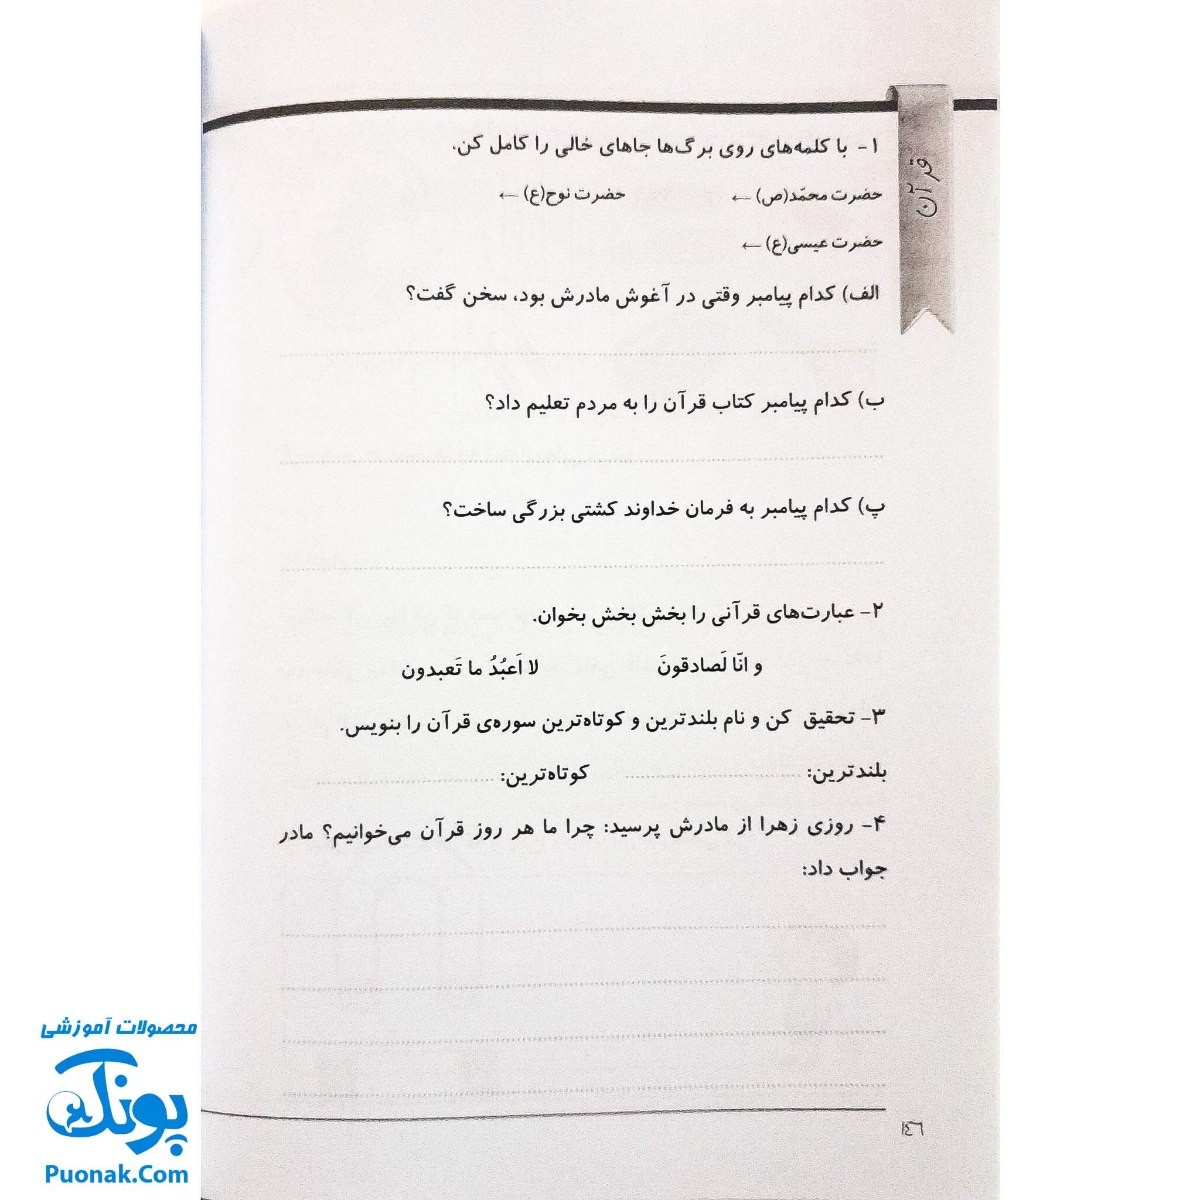 قرآن
۱- با کلمه‌های روی برگ‌ها جاهای خالی را کامل کن.
حضرت محمّد(ص) ← حضرت نوح(ع) ←
حضرت عیسی(ع) ←
الف) کدام پیامبر وقتی در آغوش مادرش بود، سخن گفت؟
ب) کدام پیامبر کتاب قرآن را به مردم تعلیم داد؟
پ) کدام پیامبر به فرمان خداوند کشتی بزرگی ساخت؟
۲- عبارت‌های قرآنی را بخش بخش بخوان.
و انّا لَصادقونَ لا اَعبُدُ ما تَعبدون
۳- تحقیق کن و نام بلندترین و کوتاه‌ترین سوره‌ی قرآن را بنویس.
بلندترین: کوتاه‌ترین:
۴- روزی زهرا از مادرش پرسید: چرا ما هر روز قرآن می‌خوانیم؟ مادر
جواب داد:
۱۴۶
محصولات آموزشی
پونک
Puonak.Com